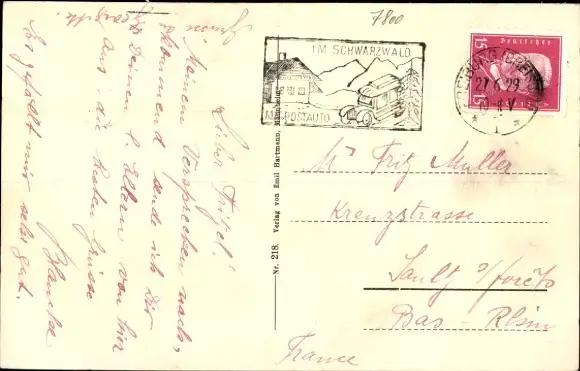 7800
IM SCHWARZWALD
MIT POSTAUTO
Deutsches
15
15
27.6.29
Lieber Fritzel!
Meinem Versprechen nach,
kommend sende ich Dir
und Deinen l. Eltern von hier
aus die besten Grüsse
Es gefällt mir sehr gut.
Blanche
Nr. 218. Verlag von Emil Hartmann,
Mr Fritz Muller
Kreuzstrasse
Sault s/forêts
Bas - Rhin
France